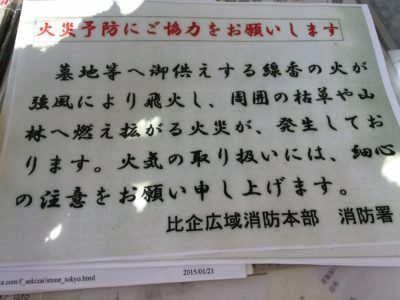 火災予防にご協力をお願いします
墓地等へ御供えする線香の火が
強風により飛火し、周囲の枯草や山
林へ燃え拡がる火災が、発生してお
ります。火気の取り扱いには、細心
の注意をお願い申し上げます。
比企広域消防本部　消防署
a.com/f_sekizai/stone_tokyo.html
2015/01/21